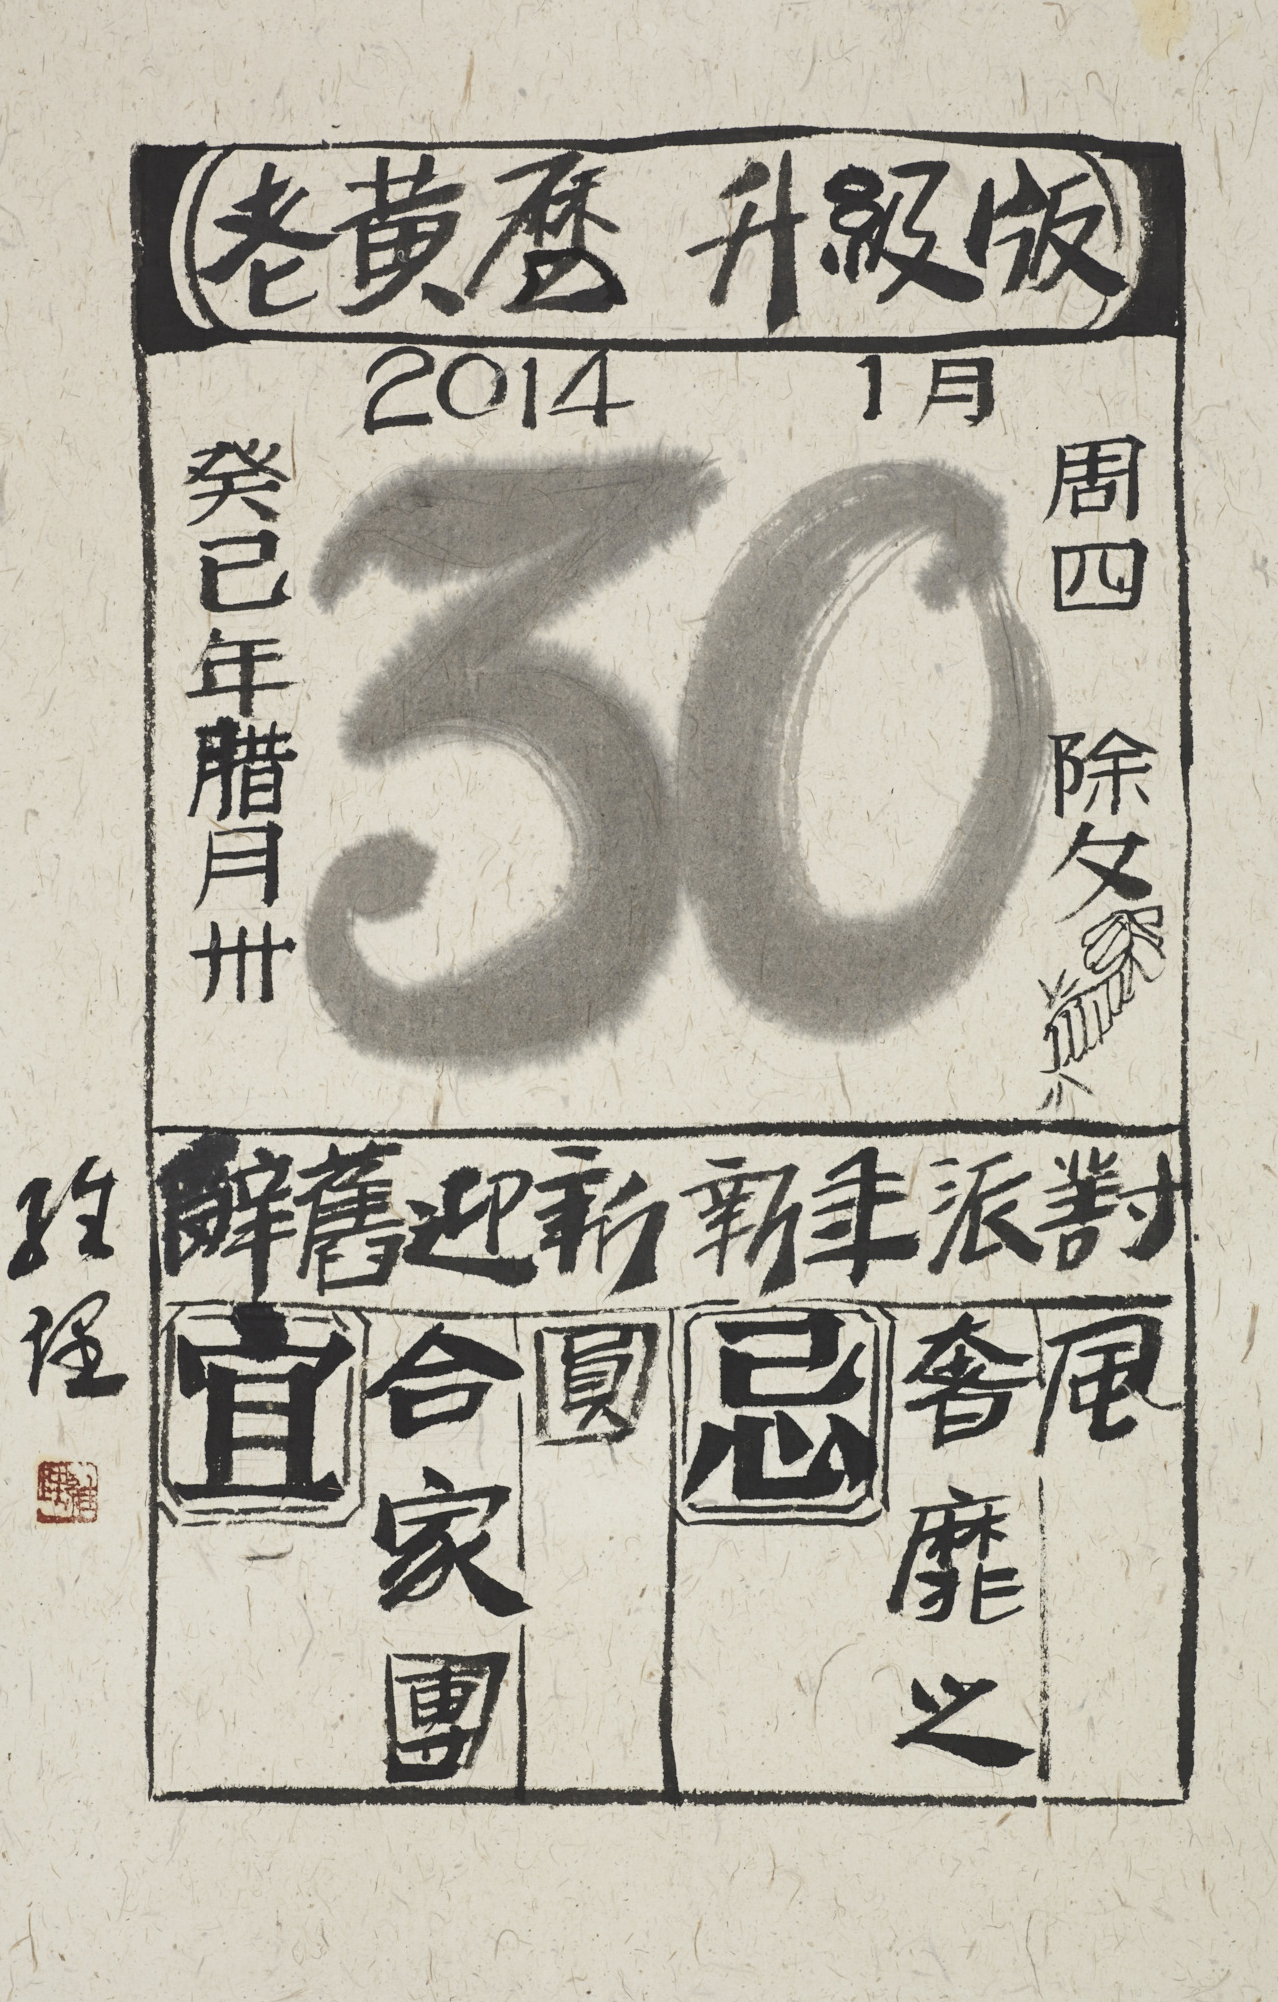 老黄曆 升級版
2014 1月
癸巳年腊月卅
30
周四 除夕
辭舊迎新 新年派對
宜
合家團
圓
忌
奢靡之
風